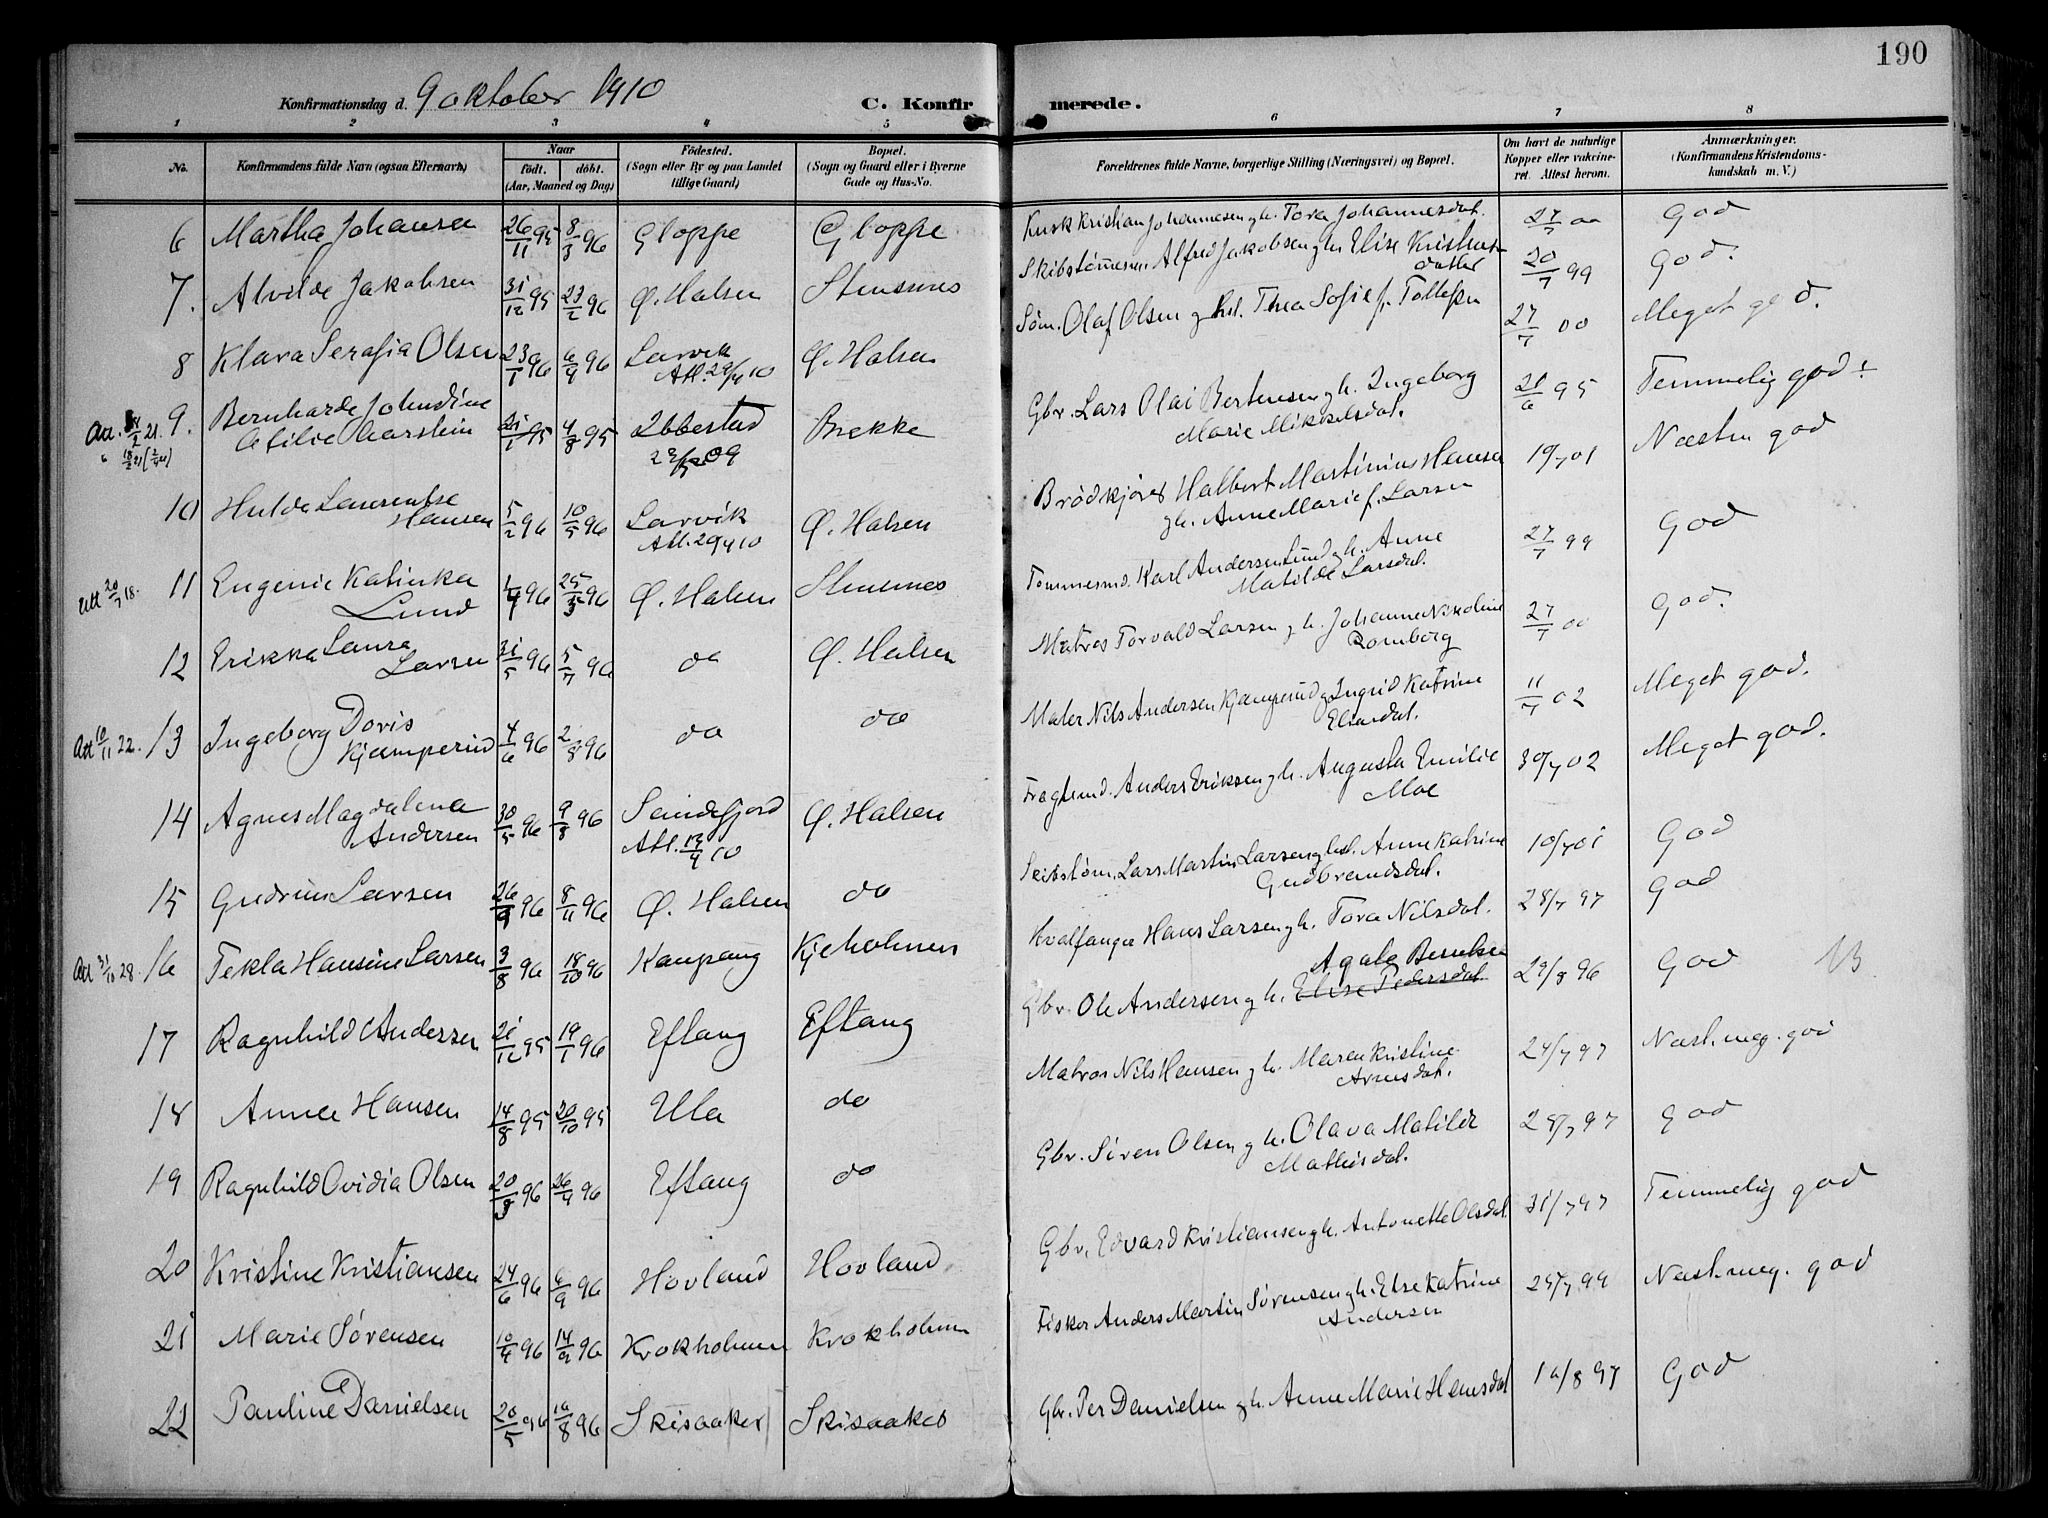 190
Konfirmationsdag d. 9 oktober 1910 C. Konfirmerede.
1 2 3 4 5 6 7 8
No. Konfirmandens fulde Navn (ogsaa Efternavn) Naar født. døbt. (Aar, Maaned og Dag) Födested. (Sogn eller By og paa Landet tillige Gaard) Bopæl. (Sogn og Gaard eller i Byerne Gade og Hus-No. Forceldrenes fulde Navne, borgerlige Stilling (Næringsvei) og Bopæl. Om havt de naturlige Kopper eller vakcineret. Attest herom. Anmærkninger. (Konfirmandens Kristendomskundskab m. V.)
6 Martha Johansen 26/11 95 8/3 96 Gloppe Gloppe Kusk Kristian Johannesen g h. Tora Johannesdat. 27/7 00 God
7. Alvilde Jakobsen 31/12 95 23/2 96 Ø. Halsen Stensnes Skibstømmerm. Alfred Jakobsen g h Elise Kristiansdatter 20/7 99 God.
8 Klara Serafia Olsen 23/1 96 6/4 96 Larvik Att. 29/4 10 Ø. Halsen Søm. Olaf Olsen g hst. Thea Sofie f. Tollefsen 27/7 00 Meget god.
Att. 21. 9. Bernharde Johndine Otilie Aarstein 21/1 95 4/8 95 Ibbestad 09 Brekke Gbr. Lars Olai Bertensen g h. Ingeborg Marie Mikkelsdat. 21/6 95 Temmelig god ÷
10 Hulda Laurentse Hansen 5/2 96 10/5 96 Larvik Att. 29/4 10 Ø. Halsen Brødkjører Halbert Martinius Hansen g h. Anne Marie f. Larsen 19/7 01 Næsten god
Utt 20/7 18. 11 Eugenie Katinka Lund 1/4 96 25/5 96 Ø. Halsen Stensnes Tømmermd. Karl Andersen Lund g h. Anne Matilde Larsdat. 27/7 99 God
12 Erikka Laura Larsen 31/5 96 5/7 96 do Ø. Halsen Matros Torvald Larsen g h. Johanne Nikoline Romborg 27/7 00 God.
Att 10/11 22. 13 Ingeborg Doris Kjamperud 4/6 96 2/8 96 do do Maler Nils Andersen Kjamperud g Ingrid Katrine Eliasdat. 11/7 02 Meget god.
14 Agnes Magdalena Andersen 30/5 96 9/8 96 Sandefjord Att. 19/9 10 Ø. Halsen Fragtemd. Anders Eriksen g h. Augusta Emilie Moe 30/7 02 Meget god.
15 Gudrun Larsen 26/9 96 8/11 96 Ø. Halsen do Skibstøm. Lars Martin Larsen g hst. Anne Katrine Gudbrandsdat. 10/7 01 God
Att 31/10 28. 16 Tekla Hansine Larsen 3/8 96 18/10 96 Kaupang Kjeholmen Hvalfanger Hans Larsen g h. Tora Nilsdat. 28/7 97 God
17 Ragnhild Andersen 21/12 95 19/1 96 Eftang Eftang Gbr. Ole Andersen g h. Elise Pedersdat Agate Berntsen 29/8 96 God
18 Anna Hansen 14/8 95 20/10 95 Ula do Matros Nils Hansen g h. Maren Kristine Arnesdat. 24/7 97 Næst. meg. god
19 Ragnhild Ovidia Olsen 20/3 96 26/4 96 Eftang do Gbr. Søren Olsen g h. Olava Matilde Mathisdat. 28/7 97 God
20 Kristine Kristiansen 24/6 96 6/9 96 Hovland Hovland Gbr. Edvard Kristiansen g h. Antonette Olsdat. 31/7 97 Temmelig god
21 Marie Sørensen 10/4 96 14/9 96 Krokholmen Krokholmen Fisker Anders Martin Sørensen g h. Else Katrine Andersen 25/7 99 Næst. meg. god
22 Pauline Danielsen 20/5 96 16/8 96 Skisaaker Skisaaker Gbr. Per Danielsen g h. Anne Marie Hansdat 10/8 97 God